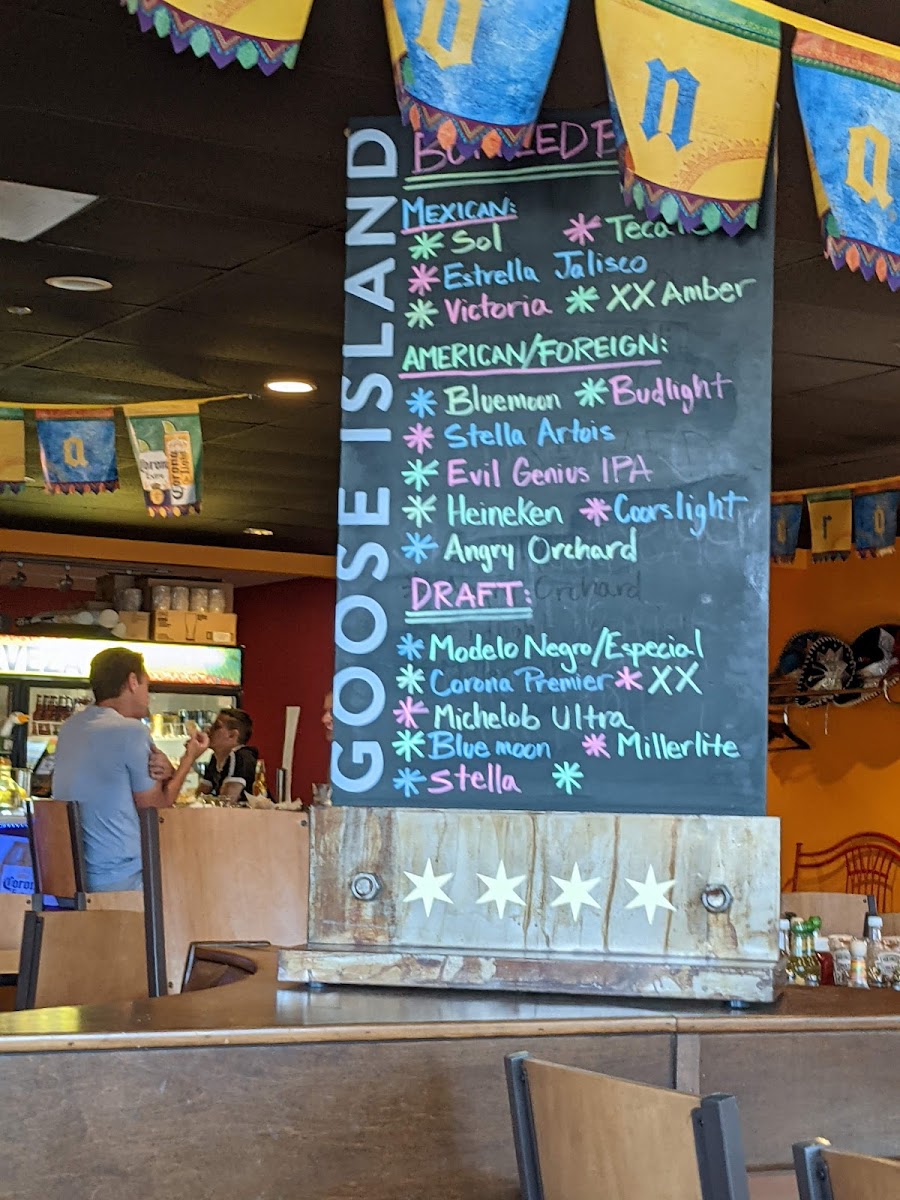 n
a
GOOSE ISLAND
MEXICAN:
Sol
Estrella Jalisco
Victoria XX Amber
AMERICAN/FOREIGN:
Bluemoon Budlight
Stella Artois
Evil Genius IPA
Heineken Coorslight
Angry Orchard
Orchard
DRAFT:
Modelo Negro/Especial
Corona Premier XX
Michelob Ultra
Blue moon Millerlite
Stella
a
Corona
VEZA
Corona